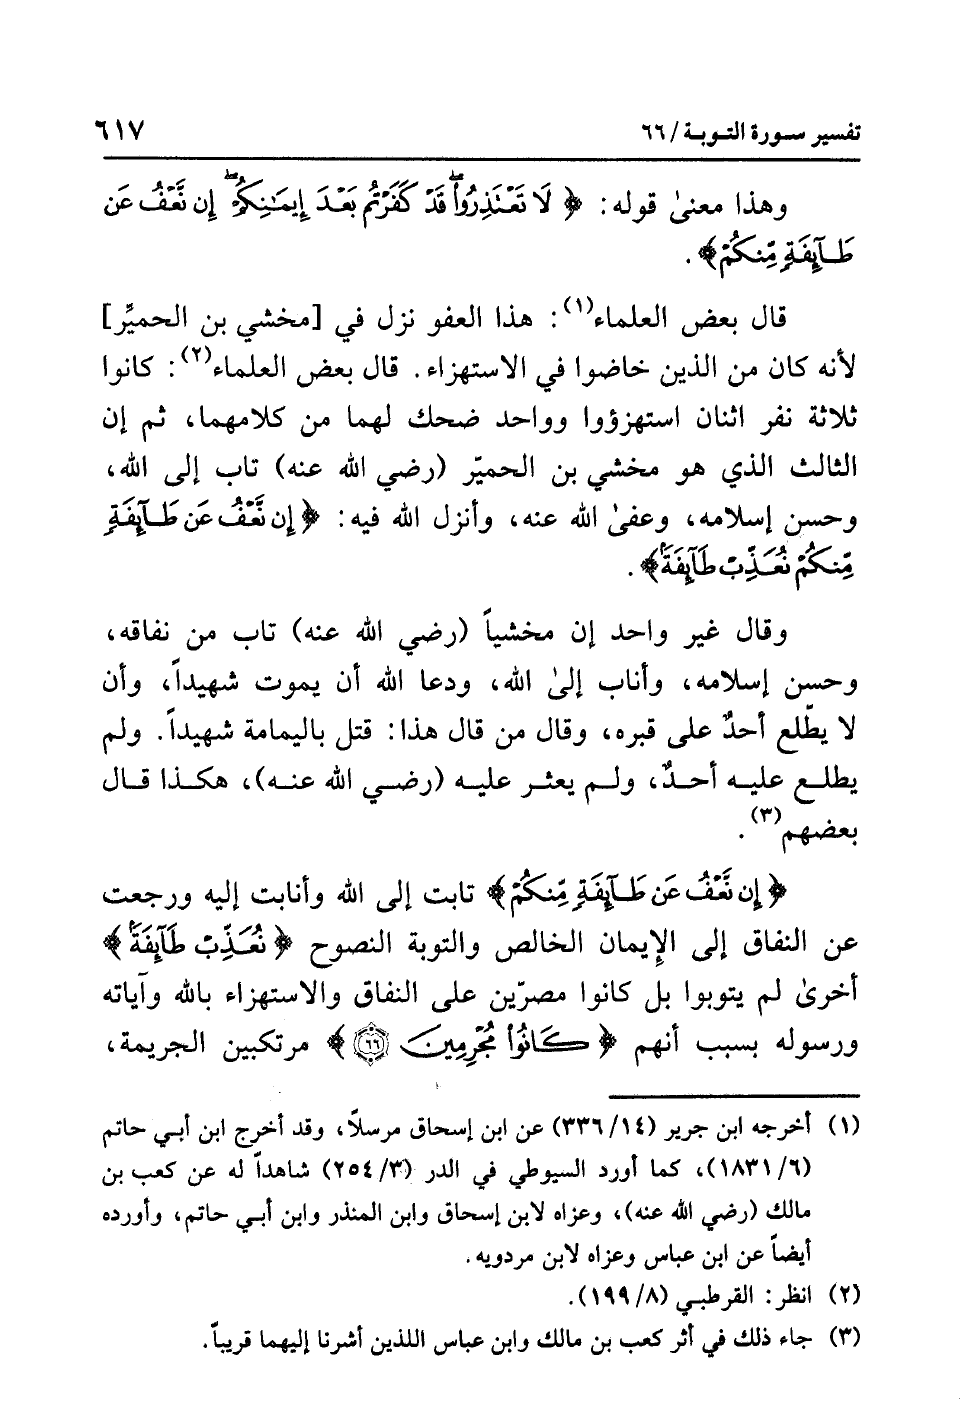 تفسير سورة التوبة / ٦٦ ٦١٧
وهذا معنىٰ قوله: ﴿ لَا تَعْتَذِرُواْ قَدْ كَفَرْتُم بَعْدَ إِيمَٰنِكُمْ إِن نَّعْفُ عَن
طَآئِفَةٍ مِّنكُمْ﴾.
قال بعض العلماء(١): هذا العفو نزل في [مخشي بن الحميِّر]
لأنه كان من الذين خاضوا في الاستهزاء. قال بعض العلماء(٢): كانوا
ثلاثة نفر اثنان استهزؤوا وواحد ضحك لهما من كلامهما، ثم إن
الثالث الذي هو مخشي بن الحميّر (رضي الله عنه) تاب إلى الله،
وحسن إسلامه، وعفىٰ الله عنه، وأنزل الله فيه: ﴿ إِن نَّعْفُ عَن طَآئِفَةٍ
مِّنكُمْ نُعَذِّبْ طَآئِفَةً﴾.
وقال غير واحد إن مخشياً (رضي الله عنه) تاب من نفاقه،
وحسن إسلامه، وأناب إلىٰ الله، ودعا الله أن يموت شهيداً، وأن
لا يطّلع أحدٌ على قبره، وقال من قال هذا: قتل باليمامة شهيداً. ولم
يطلع عليه أحدٌ، ولم يعثر عليه (رضي الله عنه)، هكذا قال
بعضهم(٣).
﴿إِن نَّعْفُ عَن طَآئِفَةٍ مِّنكُمْ﴾ تابت إلى الله وأنابت إليه ورجعت
عن النفاق إلى الإيمان الخالص والتوبة النصوح ﴿ نُعَذِّبْ طَآئِفَةً﴾
أخرىٰ لم يتوبوا بل كانوا مصرّين على النفاق والاستهزاء بالله وآياته
ورسوله بسبب أنهم ﴿ كَانُواْ مُجْرِمِينَ ٦٦ ﴾ مرتكبين الجريمة،
(١) أخرجه ابن جرير (١٤/ ٣٣٦) عن ابن إسحاق مرسلاً، وقد أخرج ابن أبي حاتم
(٦/ ١٨٣١)، كما أورد السيوطي في الدر (٣/ ٢٥٤) شاهداً له عن كعب بن
مالك (رضي الله عنه)، وعزاه لابن إسحاق وابن المنذر وابن أبي حاتم، وأورده
أيضاً عن ابن عباس وعزاه لابن مردويه.
(٢) انظر: القرطبي (٨/ ١٩٩).
(٣) جاء ذلك في أثر كعب بن مالك وابن عباس اللذين أشرنا إليهما قريباً.